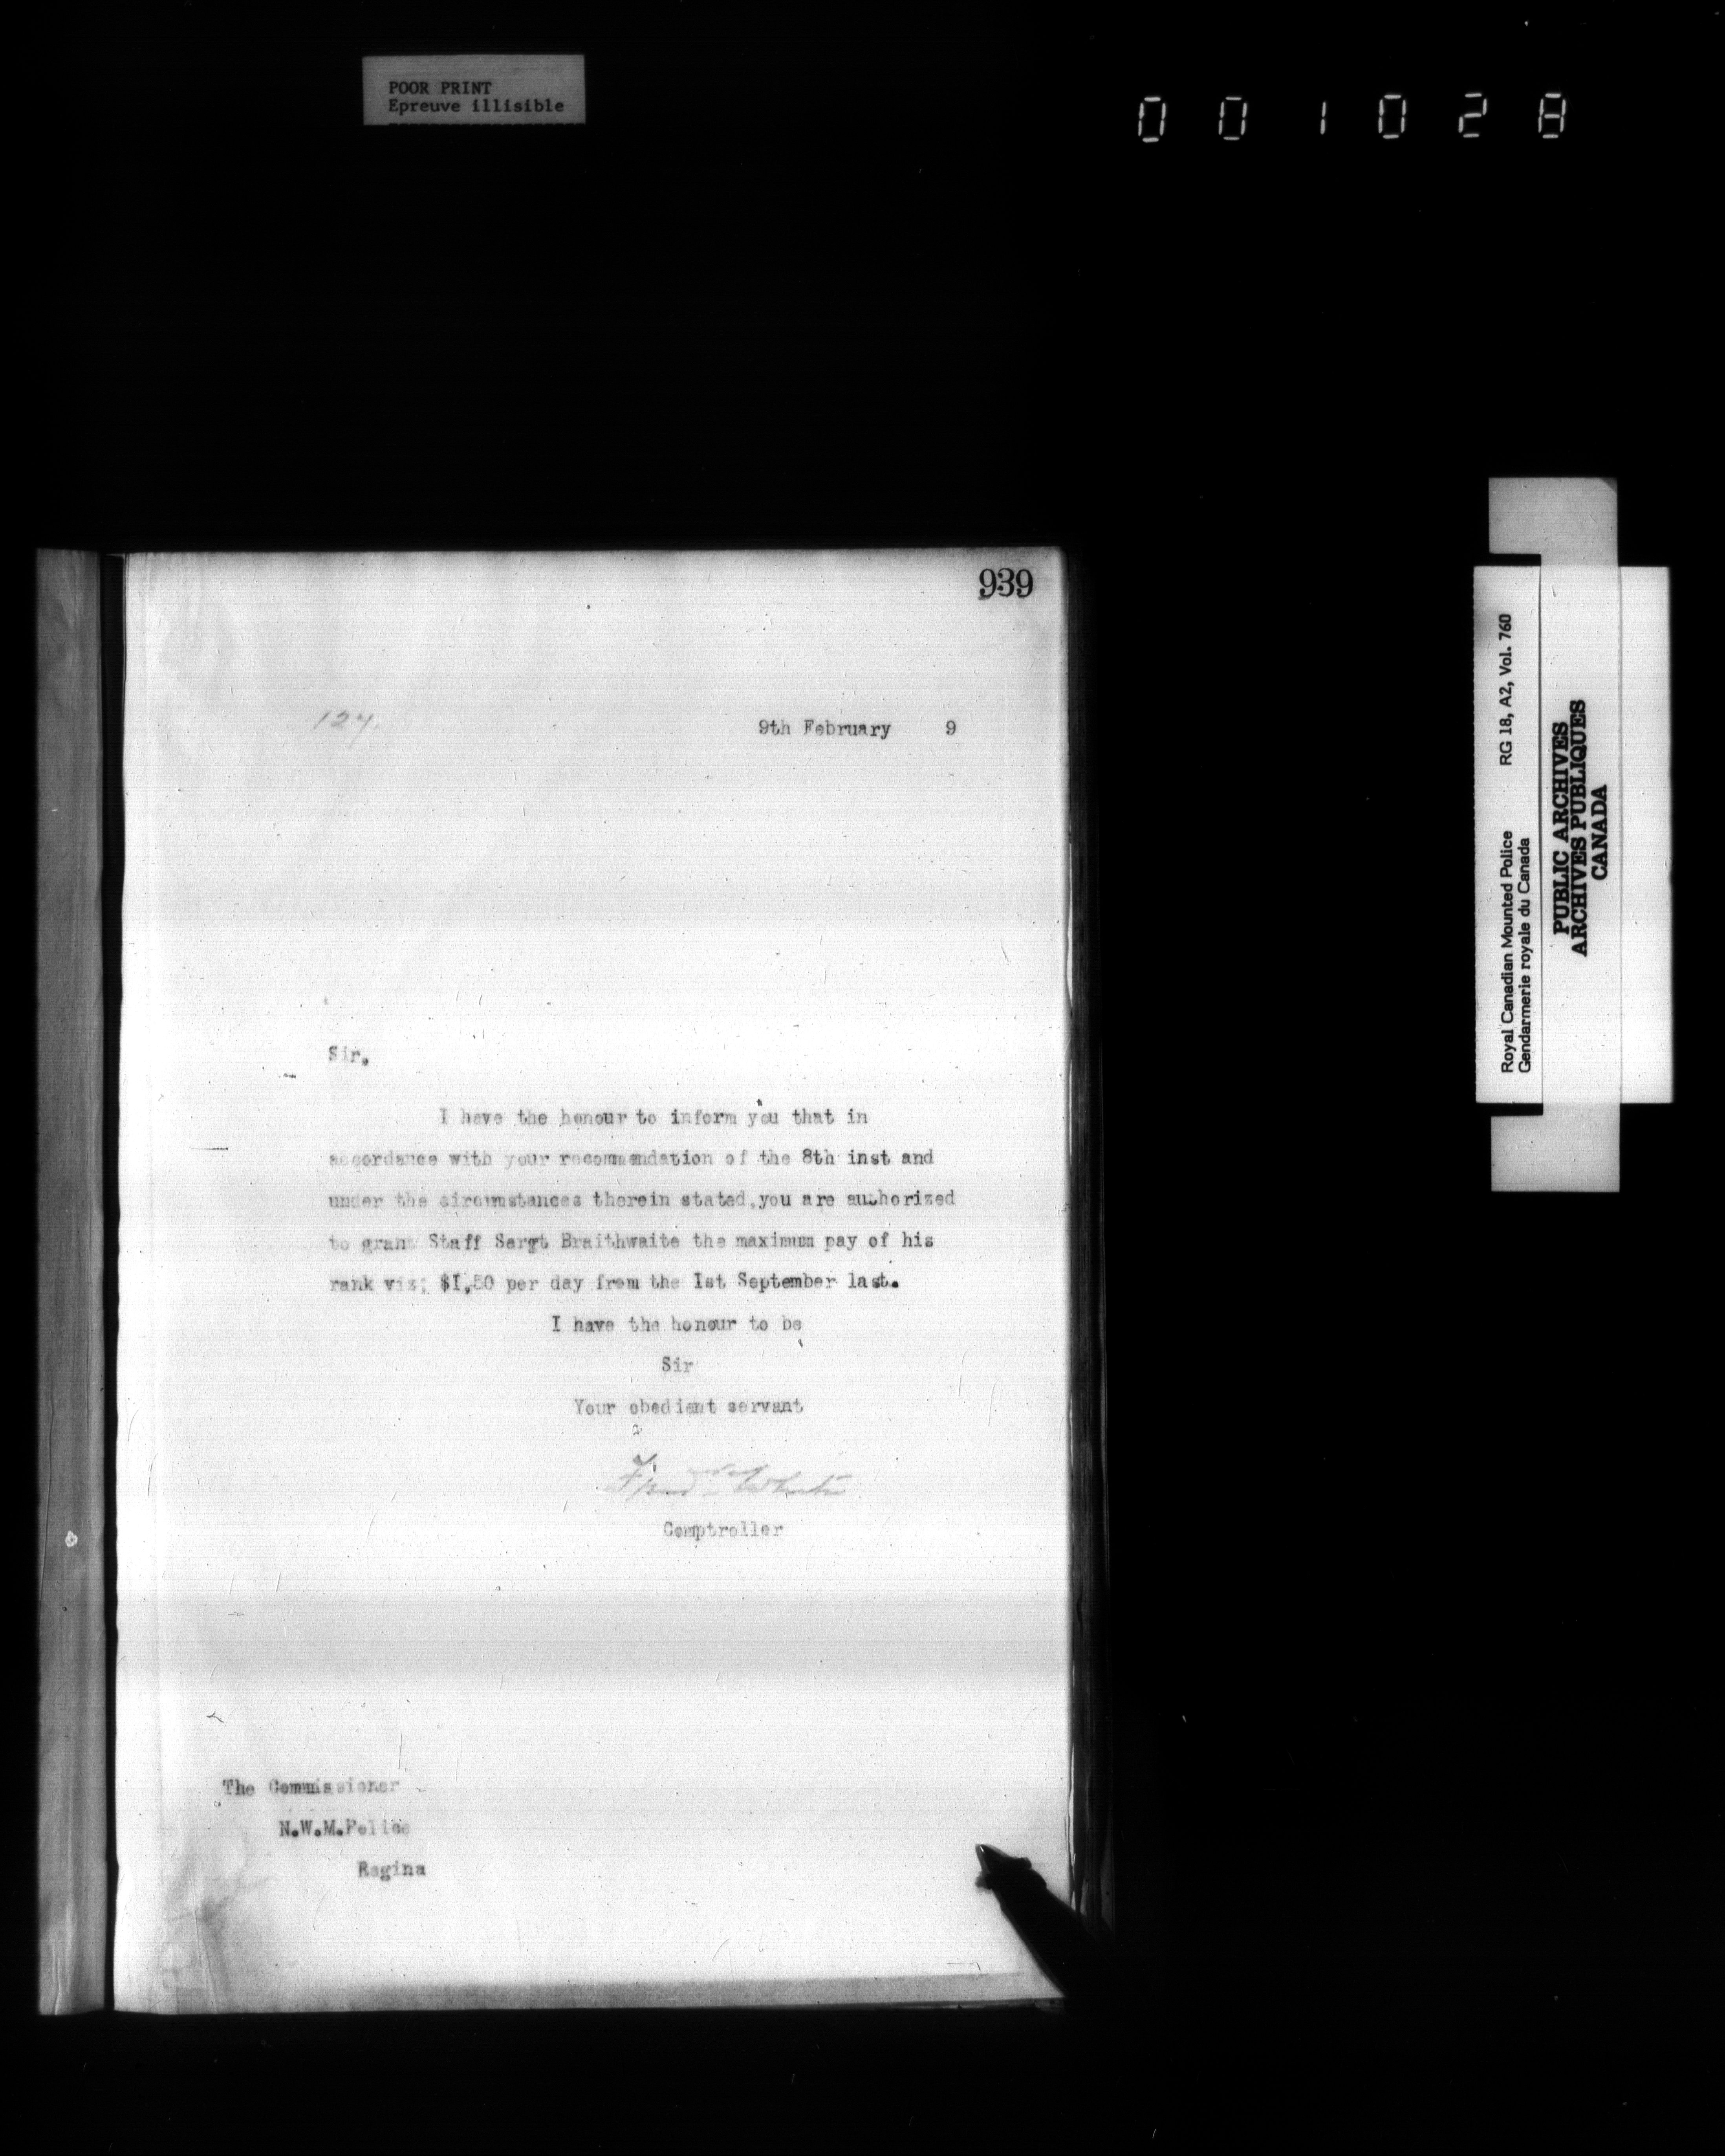 POOR PRINT
Epreuve illisible
001028
939
127.
9th February 9
Sir.
I have the honour to inform you that in
accordance with your recommendation of the 8th inst and
under the circumstances therein stated,you are authorized
to grant Staff Sergt Braithwaite the maximum pay of his
rank viz; $1,50 per day from the 1st September last.
I have the honour to be
Sir
Your obedient servant
Fred White
Comptroller
The Commissioner
N.W.M.Police
Regina
Royal Canadian Mounted Police RG 18, A2, Vol. 760
Gendarmerie royale du Canada
PUBLIC ARCHIVES
ARCHIVES PUBLIQUES
CANADA